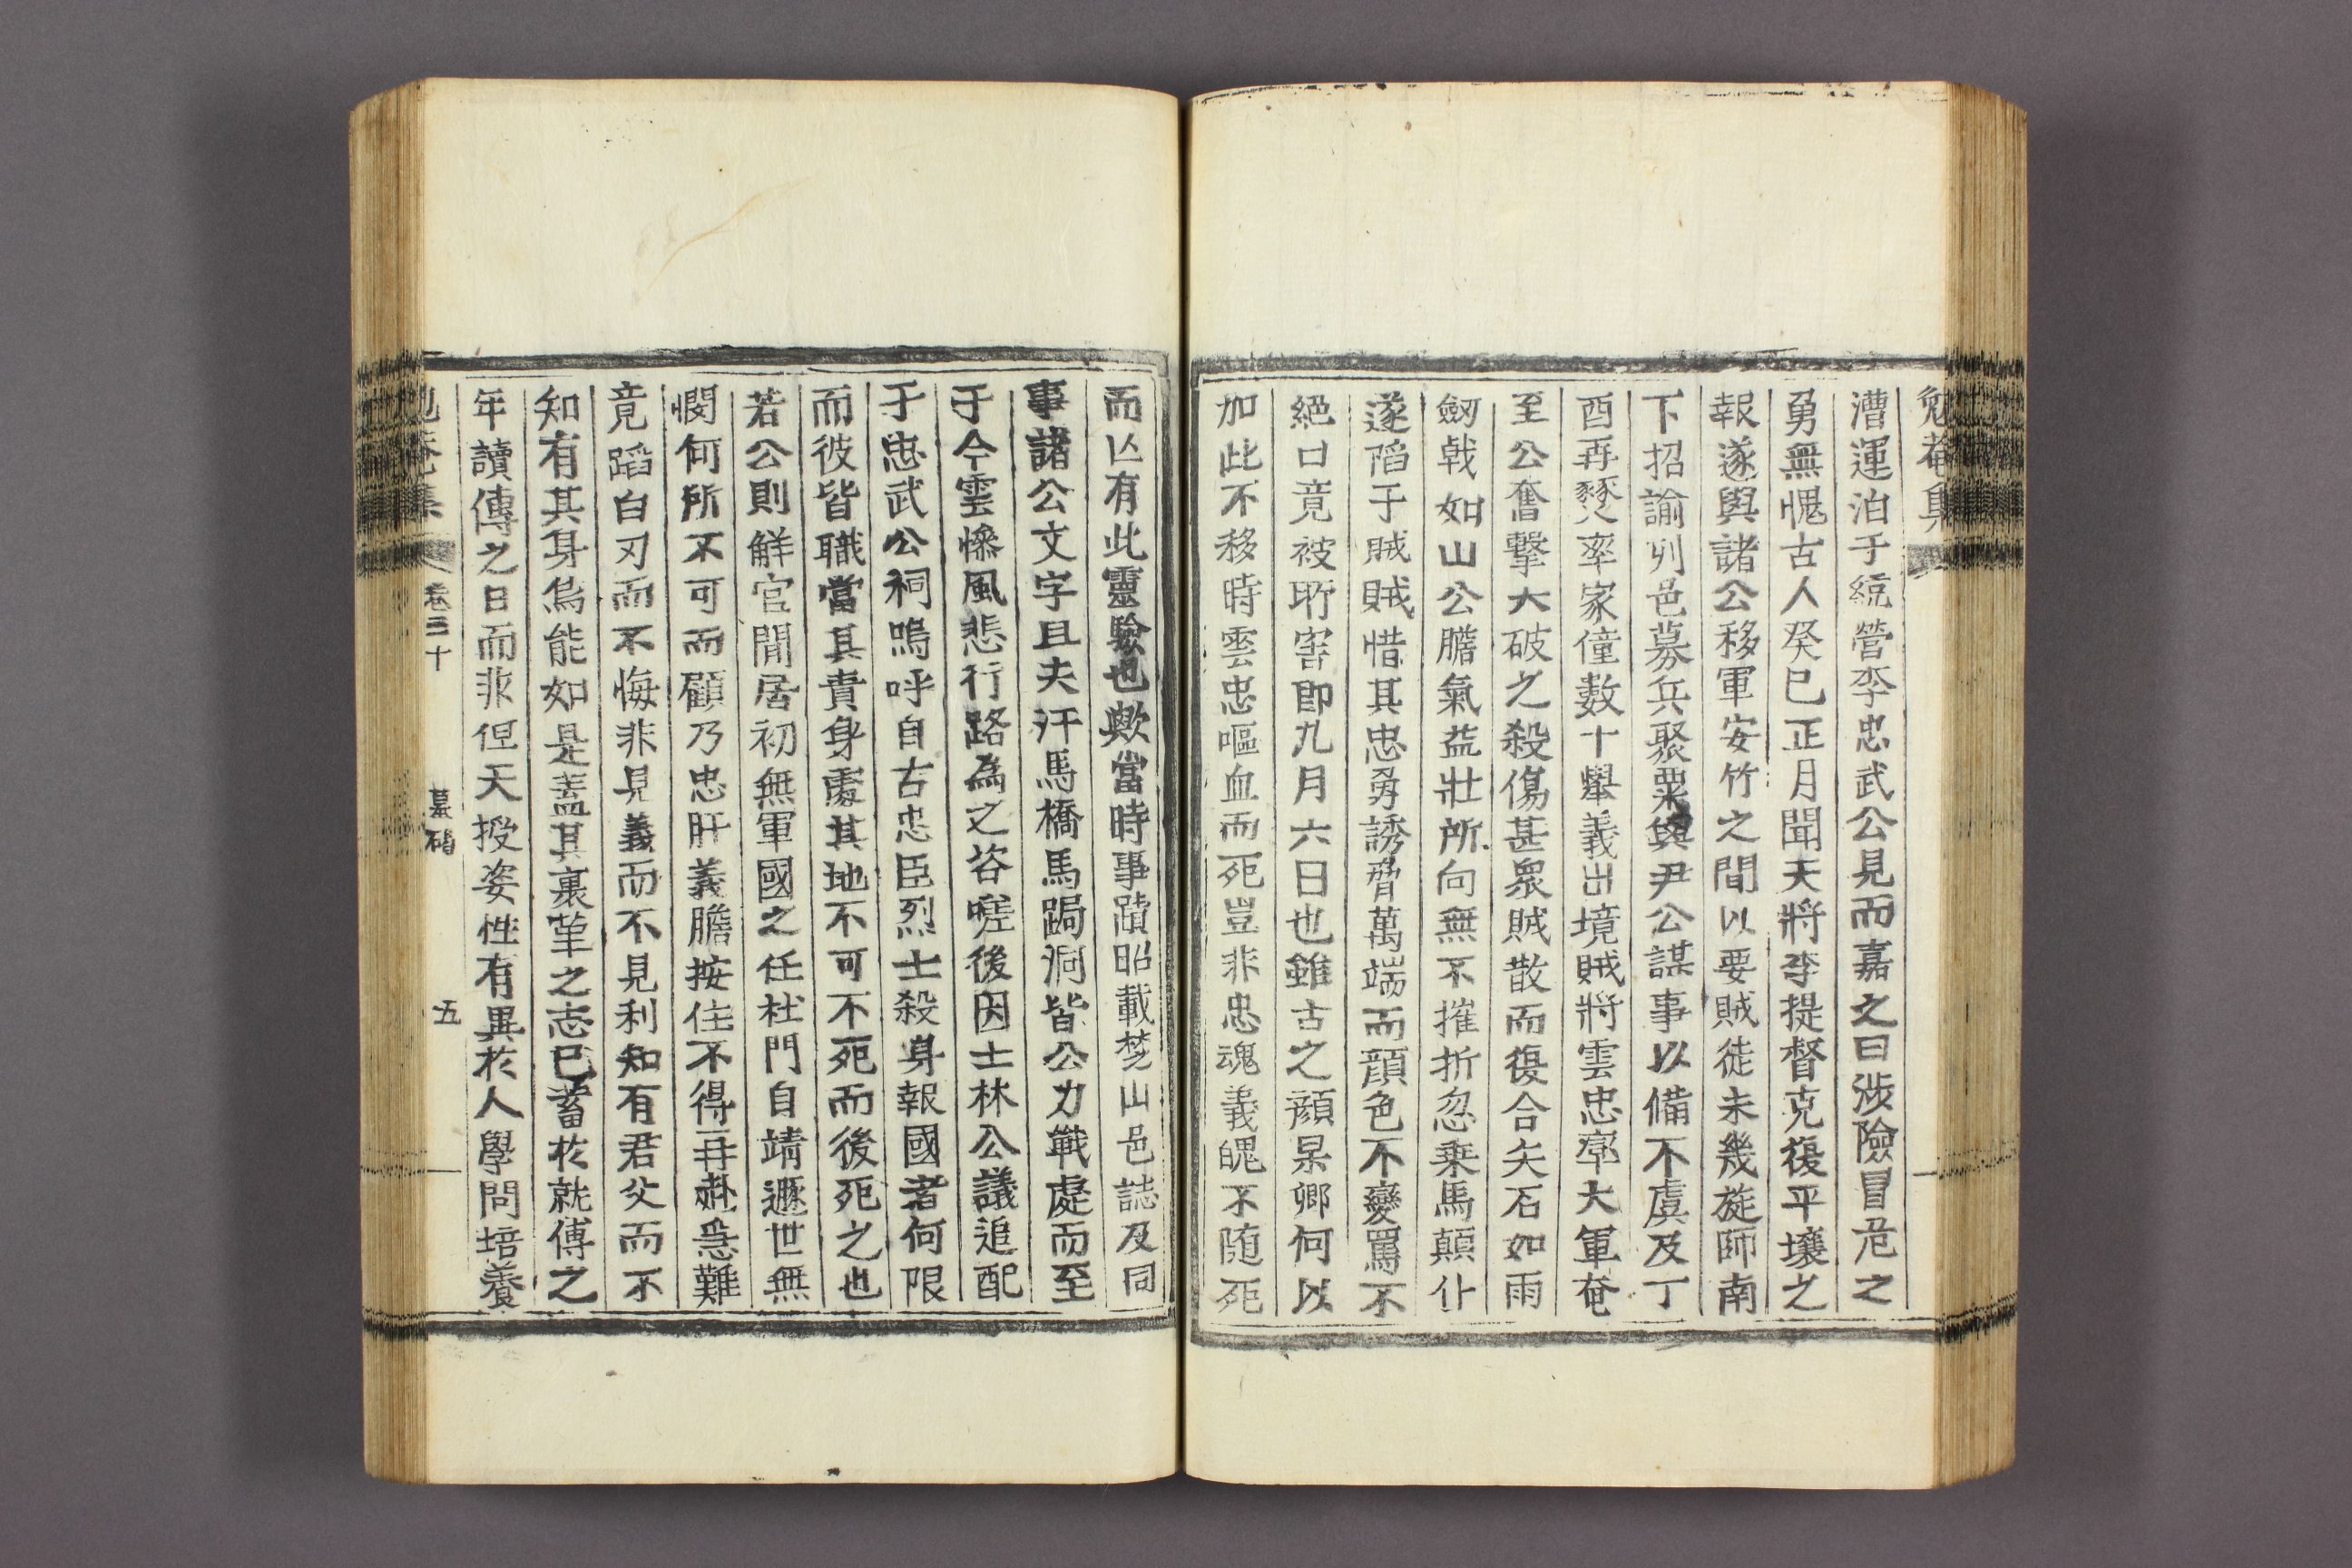 勉菴集
漕運泊于統營李忠武公見而嘉之曰涉險冒危之
勇無愧古人癸巳正月聞天將李提督克復平壤之
報遂與諸公移軍安竹之間以要賊徒未幾旋師南
下招諭列邑募兵聚粟與尹公謀事以備不虞及丁
酉再燹率家僮數十擧義出境賊將雲忠率大軍奄
至公奮擊大破之殺傷甚衆賊散而復合矢石如雨
劒戟如山公膽氣益壯所向無不摧折忽乘馬顚仆
遂陷于賊賊惜其忠勇誘脅萬端而顔色不變罵不
絕口竟被所害卽九月六日也雖古之顔杲卿何以
加此不移時雲忠嘔血而死豈非忠魂義魄不随死
而亾有此靈驗也歟當時事蹟昭載楚山邑誌及同
事諸公文字且夫汗馬橋馬跼洞皆公力戰處而至
于今雲慘風悲行路爲之咨嗟後因士林公議追配
于忠武公祠嗚呼自古忠臣烈士殺身報國者何限
而彼皆職當其責身處其地不可不死而後死之也
若公則鮮官閒居初無軍國之任杜門自靖遯世無
憫何所不可而顧乃忠肝義膽按住不得再赴急難
竟蹈白刃而不悔非見義而不見利知有君父而不
知有其身烏能如是盖其裹革之志已蓄於就傅之
年讀傳之日而非但天授姿性有異於人學問培養
勉菴集 卷三十 墓碣 五